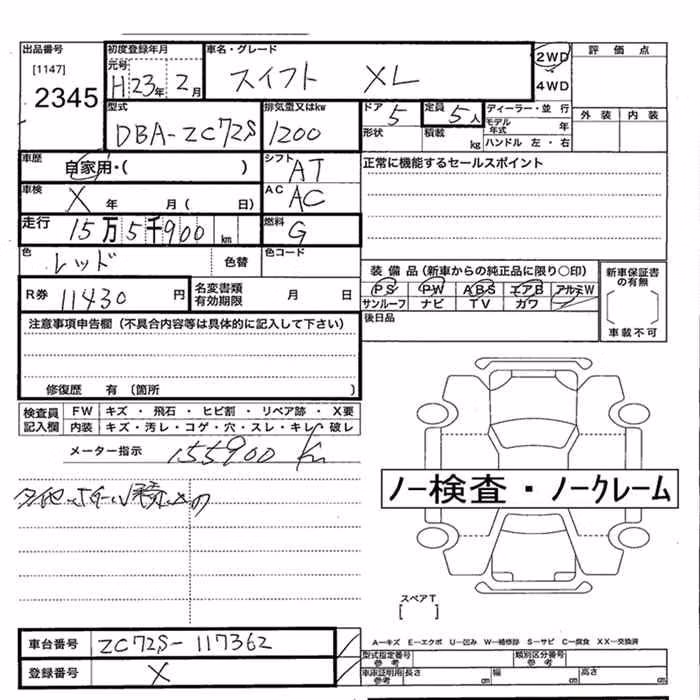 出品番号 初度登録年月 車名・グレード 2WD 評価点
[1147] 元号 H 23年 2月 スイフト XL 4WD
2345
型式 排気量又はkw ドア 定員 ディーラー・並行 外装 内装
DBA-ZC72S 1200 5 5人 モデル年式 年
形状 積載 kg ハンドル 左・右
車歴 自家用・( ) シフト AT 正常に機能するセールスポイント
車検 X 年 月( 日) AC AC
走行 15万5千900 km 燃料 G
色 レッド 色替 色コード
装備品(新車からの純正品に限り○印) 新車保証書の有無
R券 11430 円 名変書類有効期限 月 日 PS PW ABS エアB アルミW
サンルーフ ナビ TV カワ 車載不可
注意事項申告欄(不具合内容等は具体的に記入して下さい) 後日品
修復歴 有(箇所 )
検査員記入欄 FW キズ・飛石・ヒビ割・リペア跡・X要
内装 キズ・汚レ・コゲ・穴・スレ・キレ・破レ
メーター指示 155900 Km
ノー検査・ノークレーム
スペアT
[ ]
車台番号 ZC72S-117362 A―キズ E―エクボ U―凹み W―補修跡 S―サビ C―腐食 XX―交換済
登録番号 X 型式指定番号 参考 類別区分番号 参考
車庫証明用 参考 長さ cm 幅 cm 高さ cm